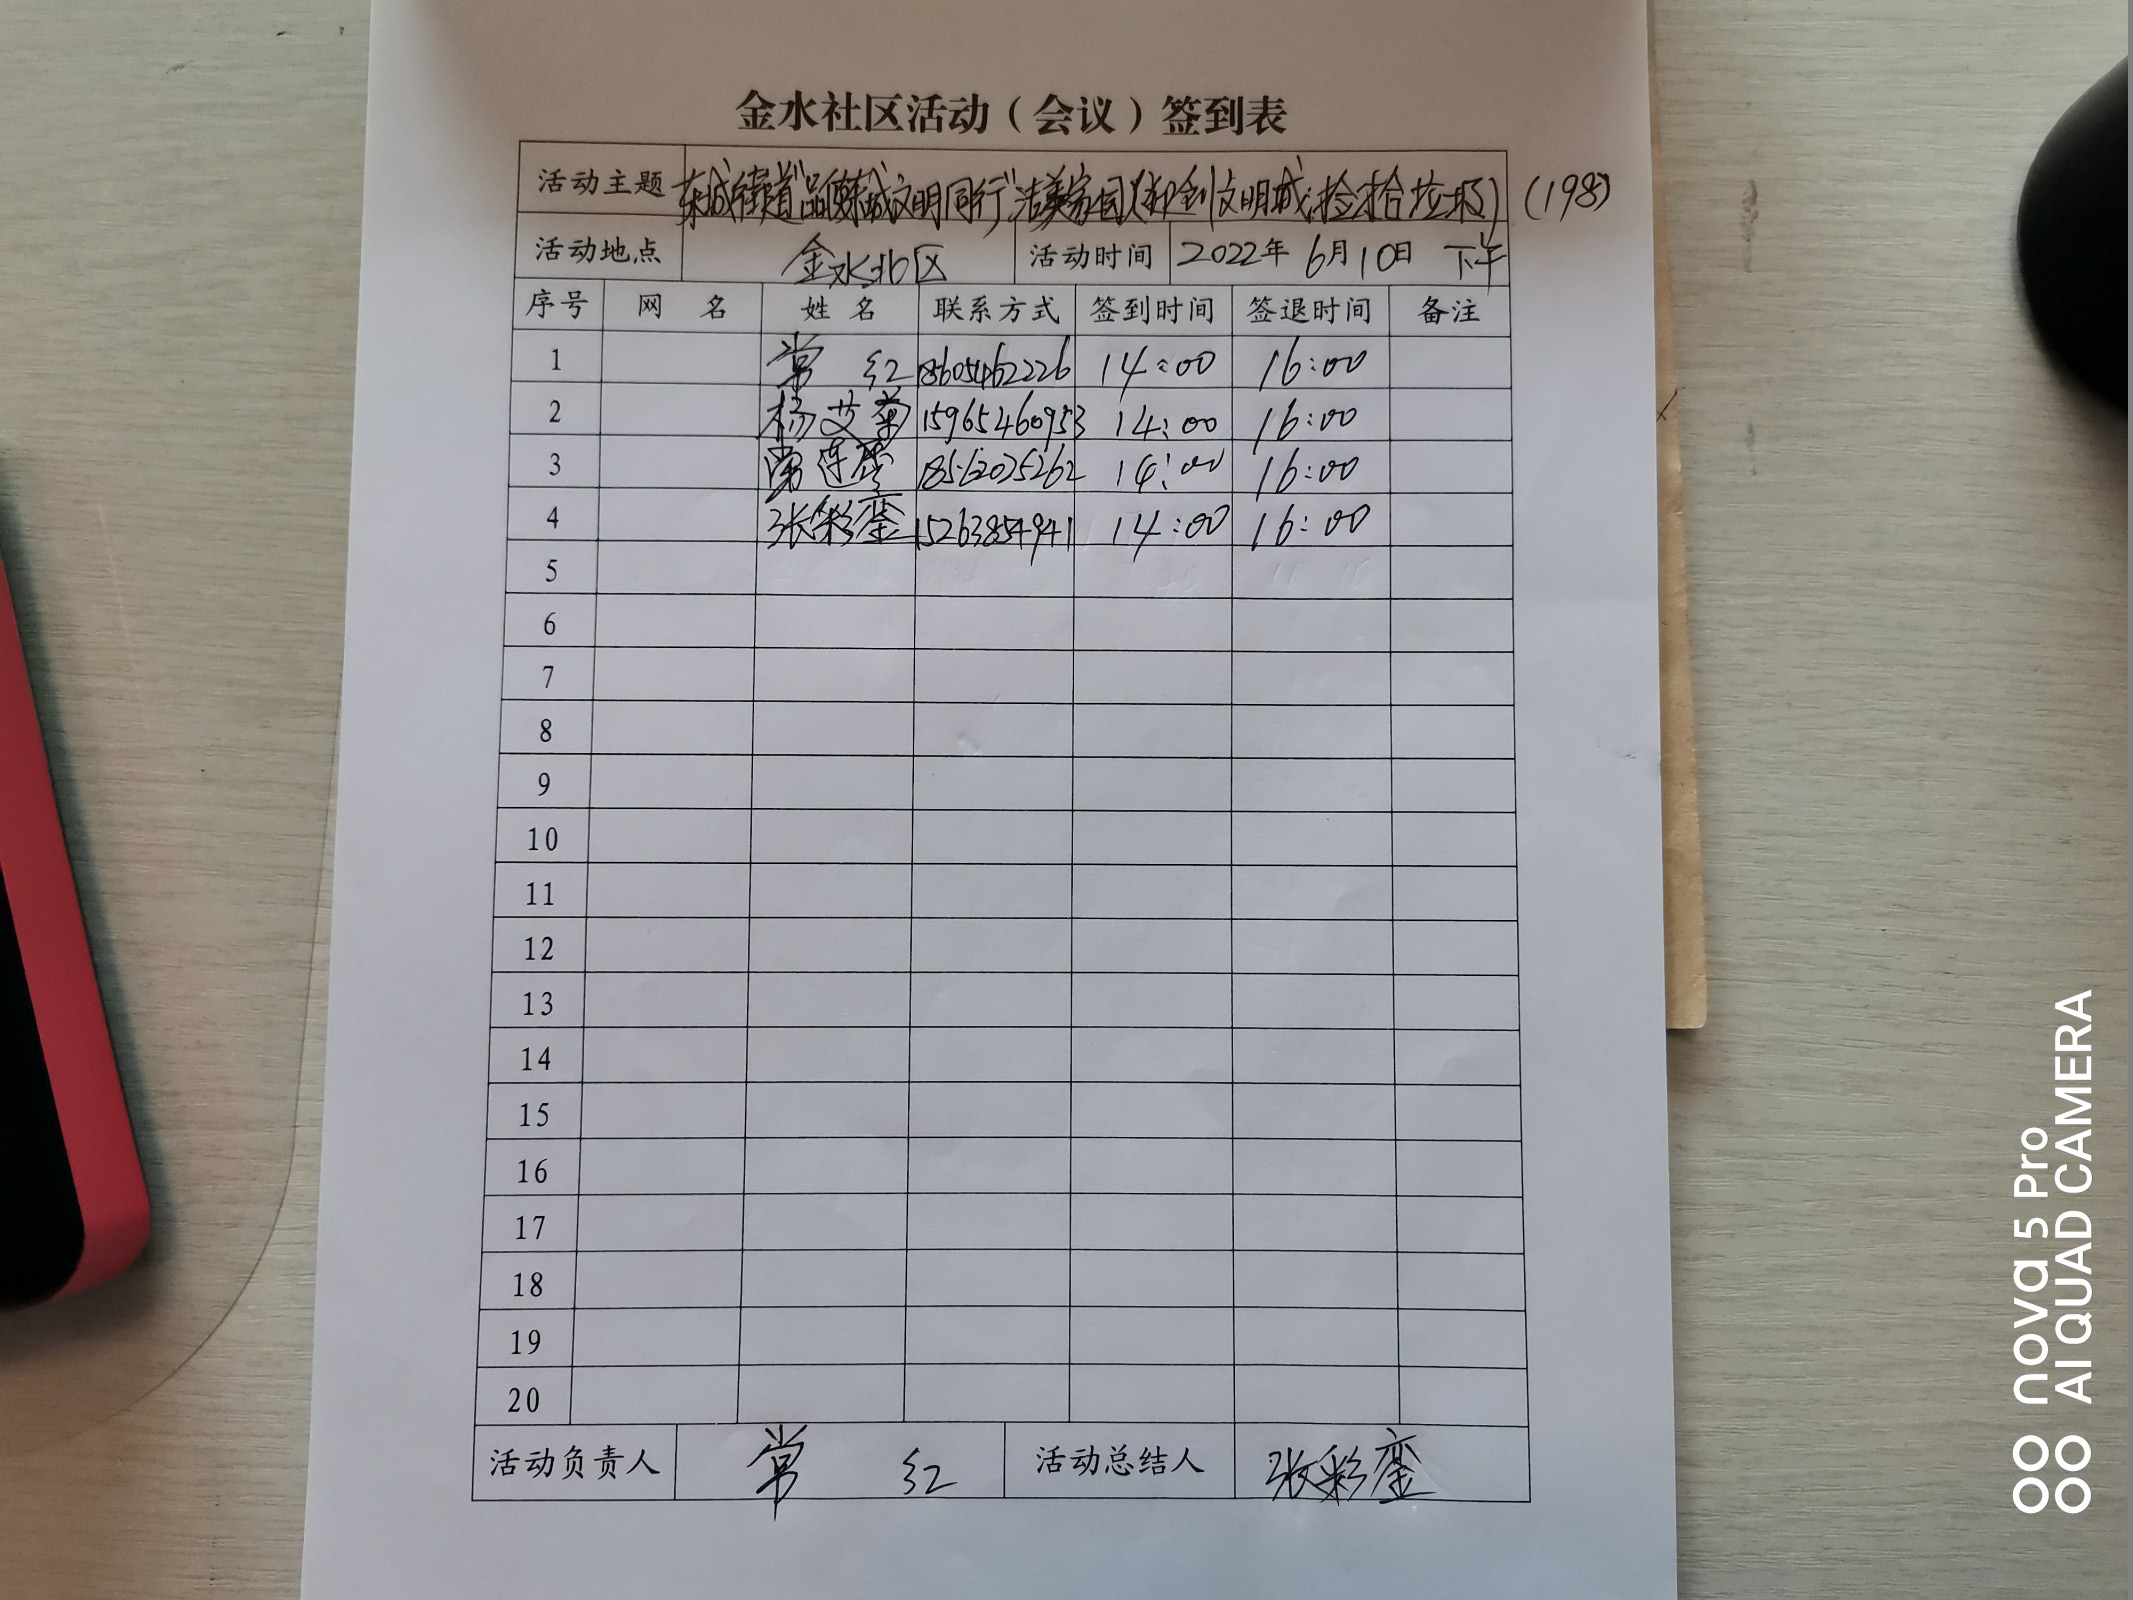 金水社区活动（会议）签到表
活动主题 东城街道"品质东城文明同行"洁美家园(郊创文明城,捡拾垃圾) (198)
活动地点 金水北区 活动时间 2022年 6月10日 下午
序号 网 名 姓 名 联系方式 签到时间 签退时间 备注
1 常 红 18605462226 14:00 16:00
2 杨艾菊 15965460953 14:00 16:00
3 常连 18562025262 14:00 16:00
4 张彩銮 15263854941 14:00 16:00
5
6
7
8
9
10
11
12
13
14
15
16
17
18
19
20
活动负责人 常 红 活动总结人 张彩銮
nova 5 Pro
AI QUAD CAMERA